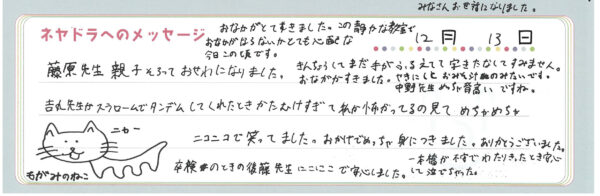 みなさんお世話になりました。
おなかがとてすきました。この静かな教室で
おなかがならないかとても心配な
今日この頃です。
ネヤドラへのメッセージ
12月 13日
藤原先生 親子そろっておせわになりました。
きんちょうしてまだ手がふるえてて字きたなくてすみません。
おなかがすきました。やきにくとおみそ汁のみたいです。
中野先生めちゃ音高いですね。
吉丸先生がスラロームでタンデムしてくれたときかたむけすぎて私が怖がってるの見てめちゃめちゃ
ニャー
ニコニコで笑ってました。おかげでめっちゃ身につきました。ありがとうございました。
もがみのねこ
卒検のときの後藤先生にこにこで安心しました。
一本橋が不安でわたりきったとき安心
して泣でちゃった。